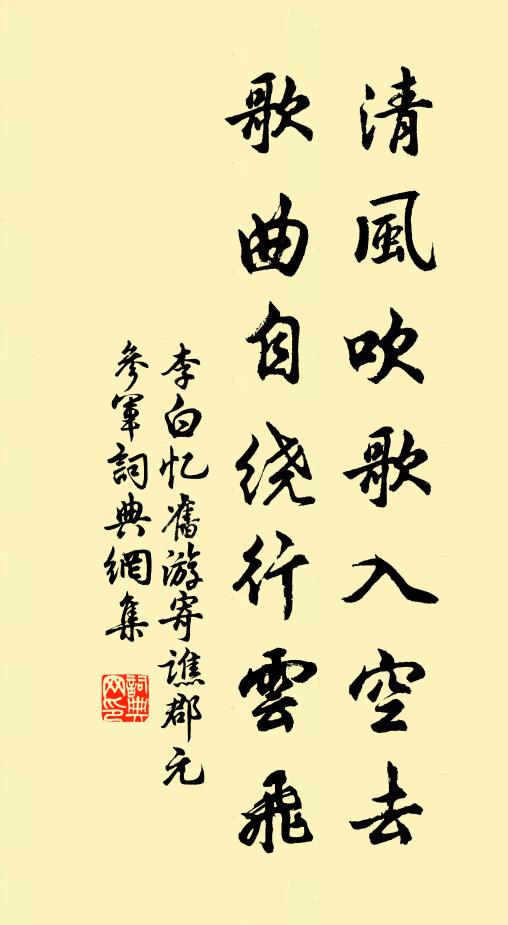 清風吹歌入空去
歌曲自绕行雲飛
李白忆舊游寄譙郡元
參軍詞典網集
詞典
网印